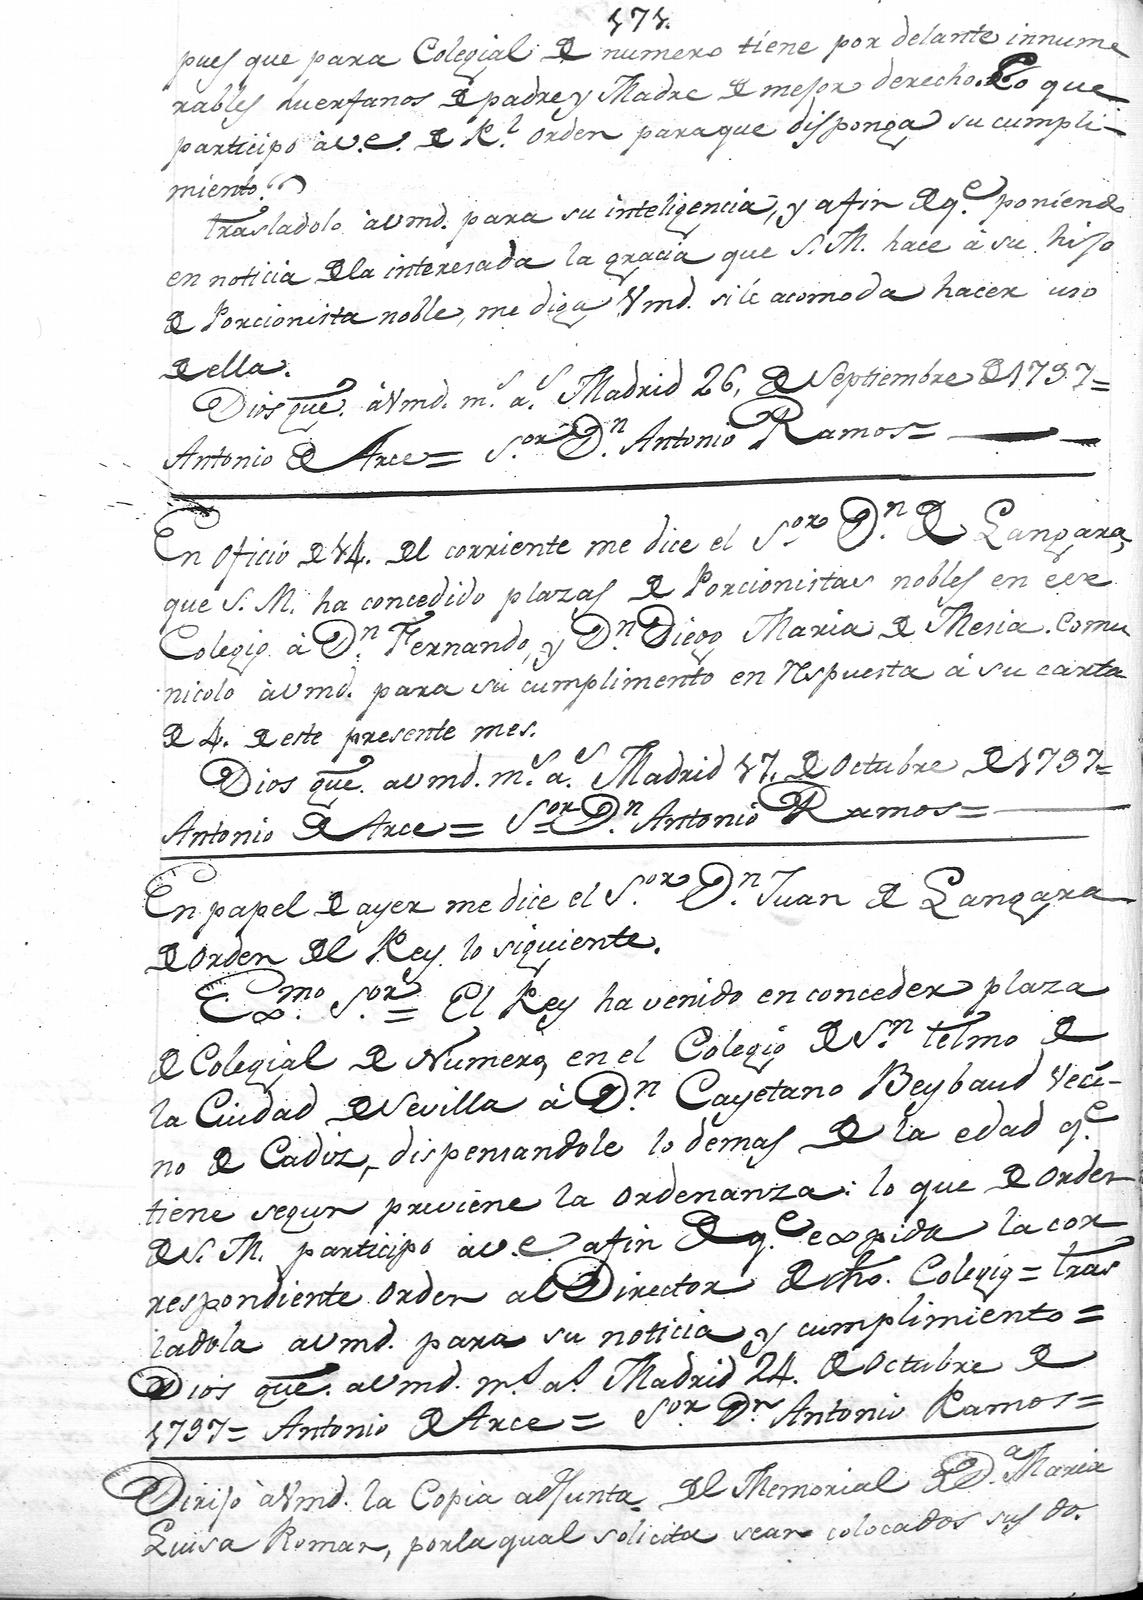 171.
pues que para Colegial de numero tiene por delante innume
rables huerfanos de padre y Madre de mejor derecho. Lo que
participo à V.e. de R.l orden paraque disponga su cumpli-
miento.
Trasladolo à Vmd. para su inteligencia, y afin de q.e poniendo
en noticia de la interesada la gracia que S. M. hace à su hijo
de Porcionista noble, me diga Vmd. si le acomoda hacer uso
de ella.
Dios gue. à Vmd. m.s a.s Madrid 26, de Septiembre de 1797=
Antonio de Arce= S.or D.n Antonio Ramos=
En oficio de 14. del corriente me dice el S.or D.n de Langara,
que S. M. ha concedido plazas de Porcionistas nobles en ese
Colegio à D.n Fernando, y D.n Diego Maria de Mesia. Comu
nicolo à Vmd. para su cumplimento en respuesta à su carta
de 4. de este presente mes.
Dios gue. a Vmd. m.s a.s Madrid 17. de Octubre de 1797=
Antonio de Arce= S.or D.n Antonio Ramos=
En papel de ayer me dice el S.or D.n Juan de Langara
de orden del Rey lo siguiente.
Exmo. S.or= El Rey ha venido en conceder plaza
de Colegial de Numero, en el Colegio de S.n Telmo de
la Ciudad de Sevilla à D.n Cayetano Beybaud Veci-
no de Cadiz, dispensandole lo demas de la edad q.e
tiene segun previene la ordenanza: lo que de orden
de S. M. participo à V.e. afin de q.e expida la cor
respondiente orden al Director de dho. Colegio= tras
ladola a Vmd. para su noticia, y cumplimiento=
Dios gue. a Vmd. m.s a.s Madrid 24. de Octubre de
1797= Antonio de Arce= S.or D.n Antonio Ramos=
Dirijo à Vmd. la Copia adjunta del Memorial de D.a Maria
Luisa Roman, por la qual solicita sean colocados sus do.